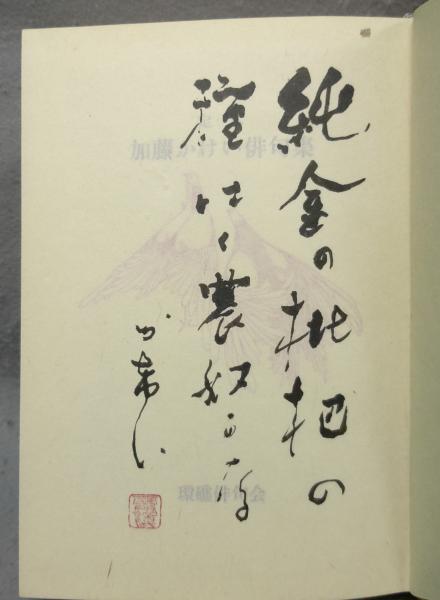 純金の枇杷の
種はく農奴
かけい
加藤かけい俳句集
環礁俳句会